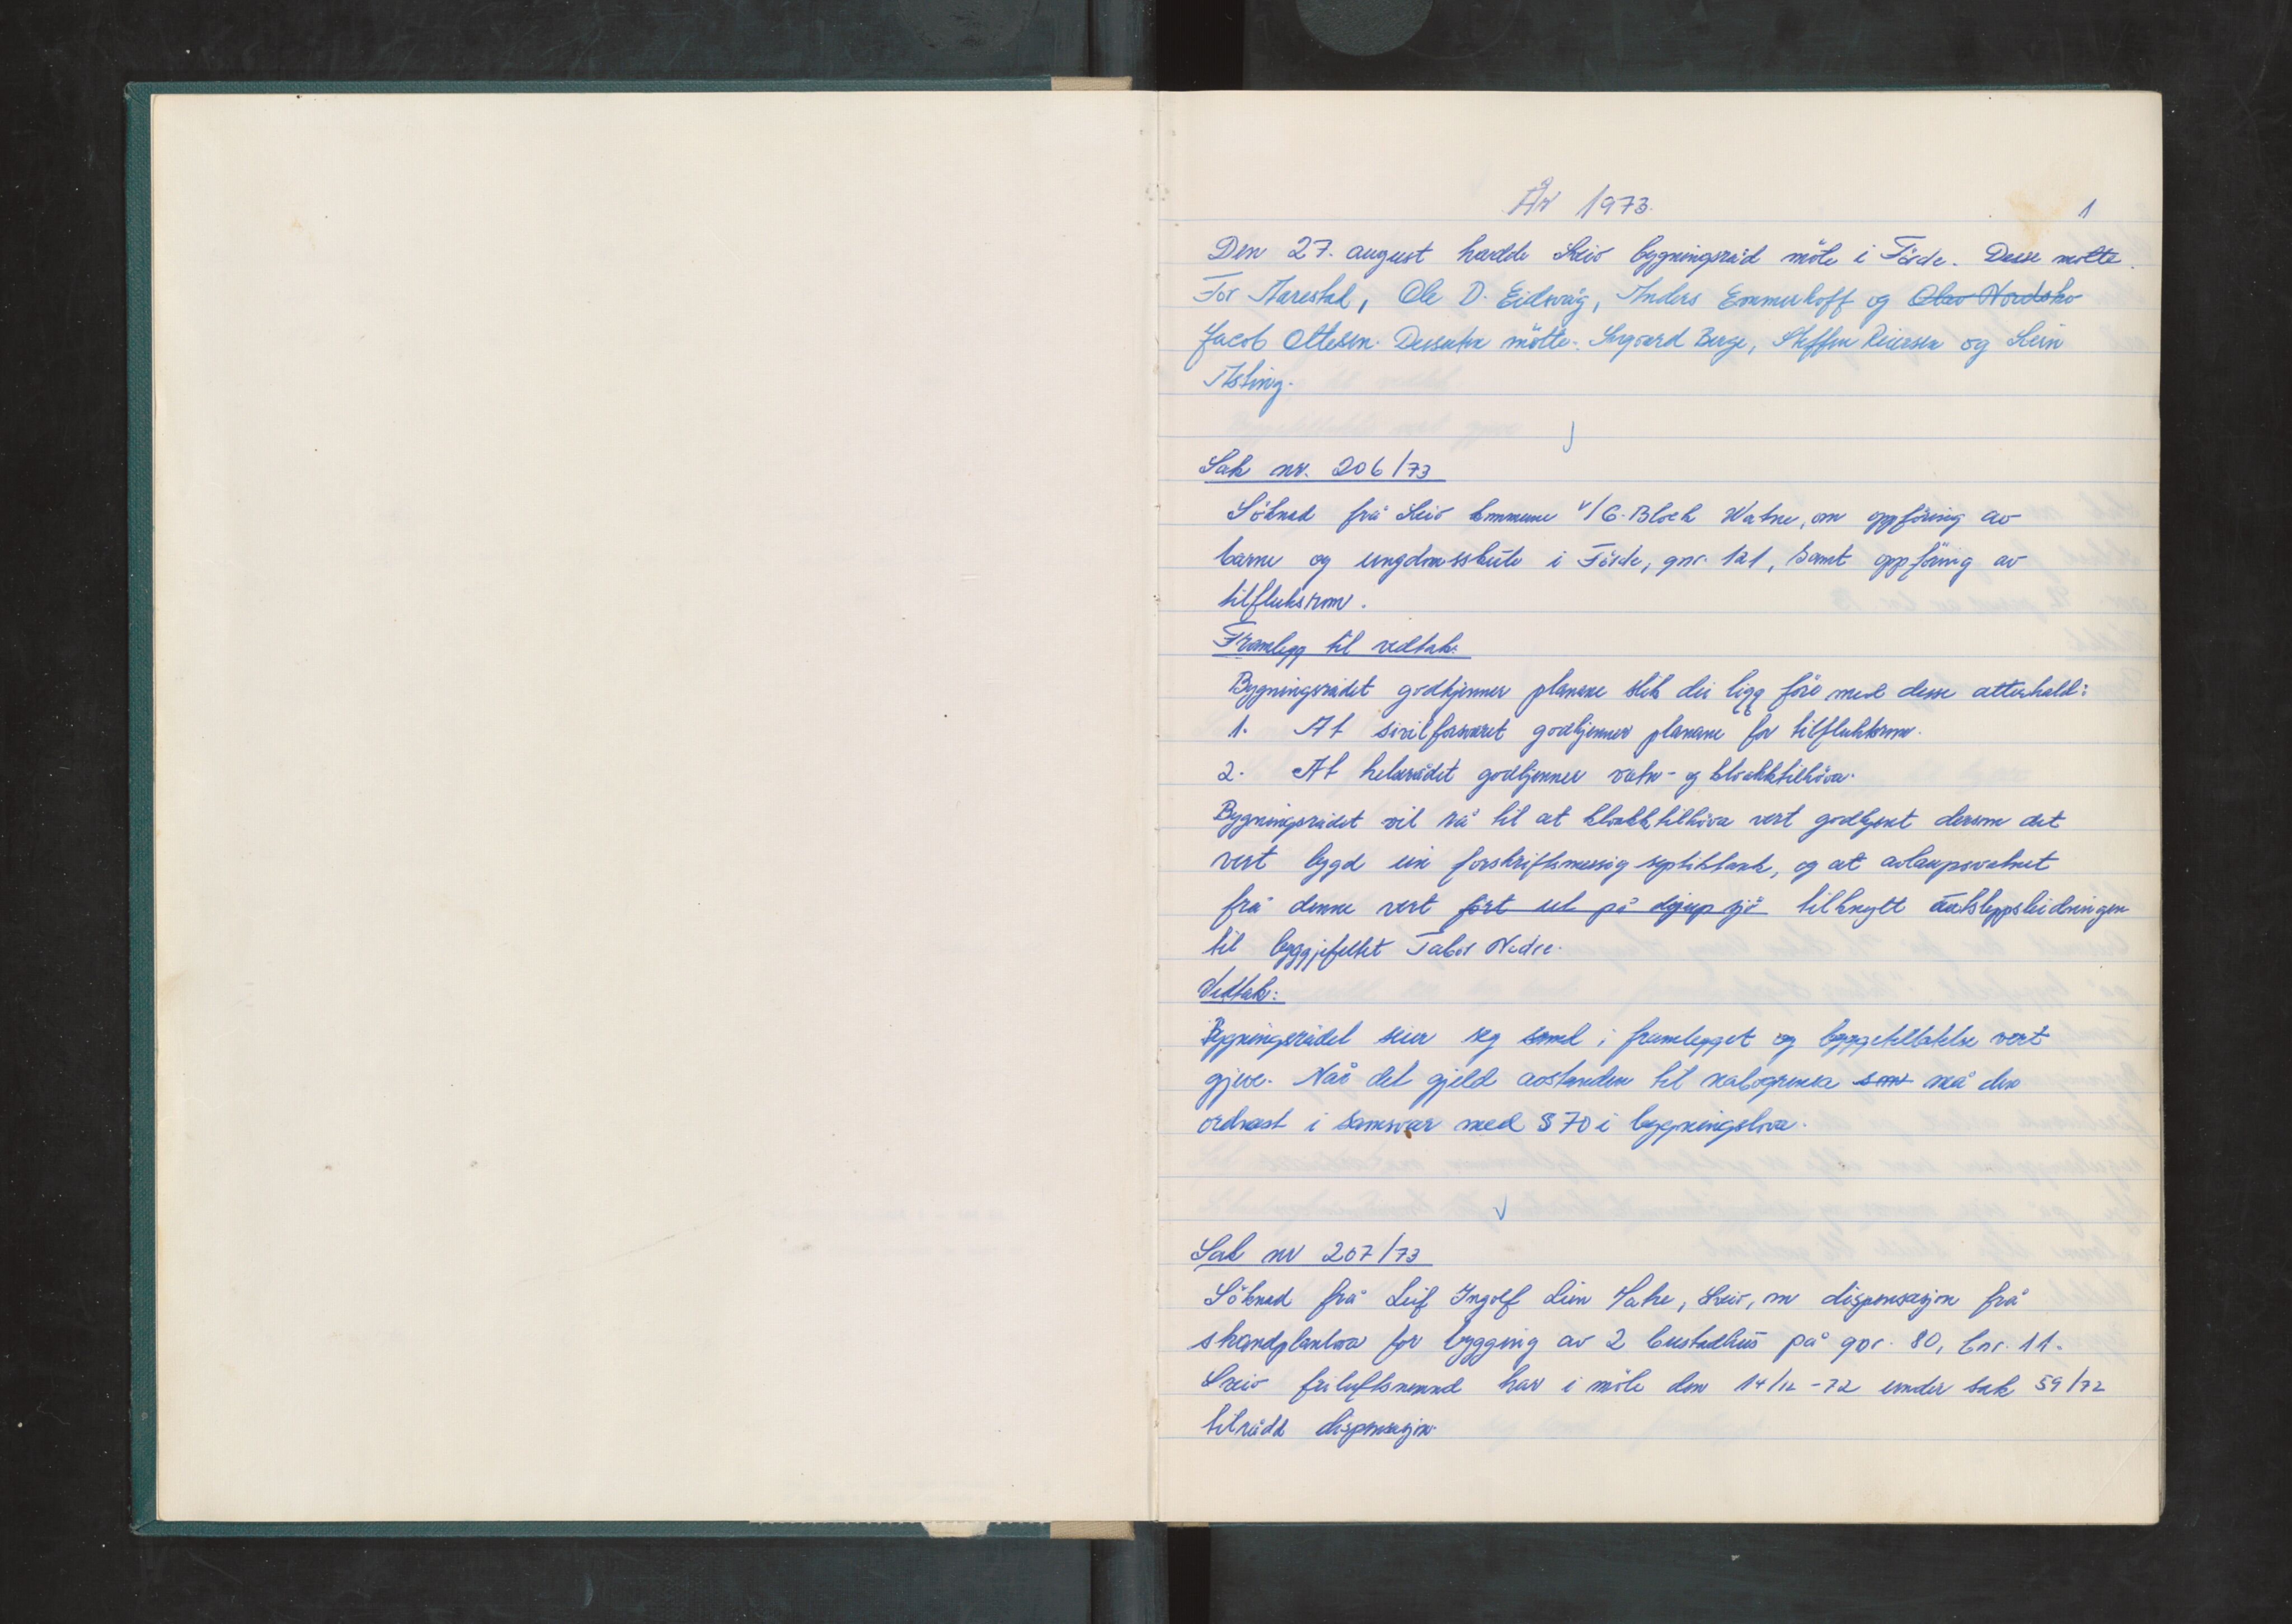 År 1973.
1
Den 27. august hadde Sveio bygningsråd möte i Förde. Desse mötte.
Tor Aarestad, Ole D. Eidsvåg, Anders Emmerhoff og Olav Nordskv
Jacob Ottesen. Dessuten mötte: Ingvard Berge, Steffen Reiersen og Svein
Asting.
Sak nr. 206/73
Söknad frå Sveio kommune v/G. Block Watne, om oppföring av
barne og ungdomsskule i Förde, gnr. 121, samt oppföring av
tilfluksrom.
Framlegg til vedtak:
Bygningsrådet godkjenner planane slik dei ligg före med desse atterhald:
1. At sivilforsvaret godkjenner planane for tilfluktsrom.
2. At helserådet godkjenner vatn- og kloakktilhöva.
Bygningsrådet vil rå til at kloakktilhöva vert godkjent dersom det
vert bygd ein forskriftsmessig septiktank, og at avlaupsvatnet
frå denne vert fört ut på djup sjö tilknytt utsleppsleidningen
til byggjefeltet Tabor Nedre.
Vedtak:
Bygningsrådet seier seg samd i framlegget og byggetillatelse vert
gjeve. Når det gjeld avstanden til nabogrensa som må den
ordnast i samsvar med § 70 i bygningslova.
Sak nr 207/73
Söknad frå Leif Ingolf Lien Sakse, Sveio, om dispensasjon frå
strandplanlova for bygging av 2 bustadhus på gnr. 80, bnr. 11.
Sveio friluftsnemnd har i möte den 14/12-72 under sak 59/72
tilrådd dispensasjon.